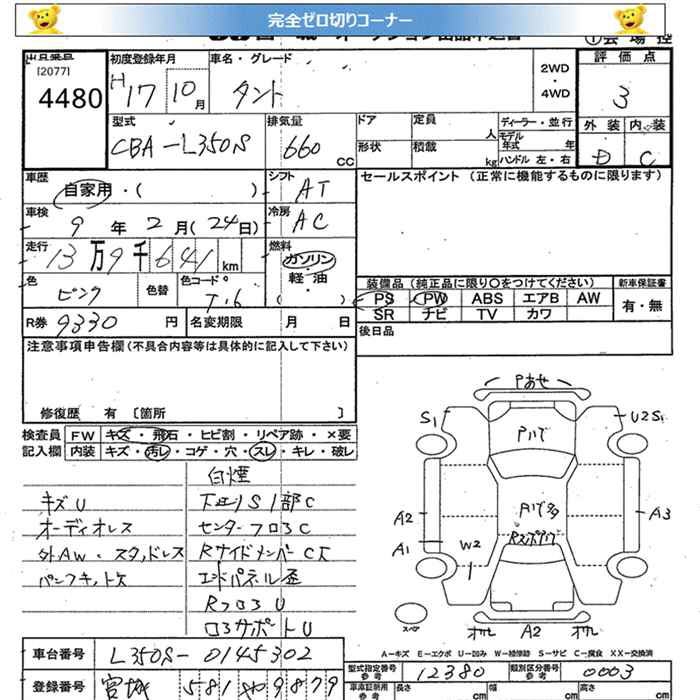 完全ゼロ切りコーナー
出品番号 初度登録年月 車名・グレード 2WD・4WD 評価点
[2077]
4480 H17 10月 タント 3
型式 排気量 ドア 定員 人 ディーラー・並行 外装 内装
CBA-L350S 660 cc 形状 積載 kg モデル年式 年 ハンドル 左・右 D C
車歴 自家用・( ) シフト AT セールスポイント (正常に機能するものに限ります)
車検 9年 2月(24日) 冷房 AC
走行 13万9千641km 燃料 ガソリン・軽油( )
色 ピンク 色替 色コードNo. T-6 装備品 (純正品に限り○をつけてください) 新車保証書
PS PW ABS エアB AW 有・無
R券 9330円 名変期限 月 日 SR ナビ TV カワ
注意事項申告欄(不具合内容等は具体的に記入して下さい) 後日品
修復歴 有 〔箇所 〕
検査員 FW キズ・飛石・ヒビ割・リペア跡・×要
記入欄 内装 キズ・汚レ・コゲ・穴・スレ・キレ・破レ
白煙
キズU 下廻りS1部C
オーディオレス センターフロアC
外AW・スタッドレス RサイドメンバーC大
パンクキット欠 エンドパネル歪
RフロアU
Pあせ
S1 U2S1
Pハゲ
A2 A3
A1 W2
スペア
A2
A-キズ E-エクボ U-凹み W-補修跡 S-サビ C-腐食 XX-交換済
車台番号 L350S-0145302 型式指定番号 参考 12380 類別区分番号 参考 0003
登録番号 宮城 581 9879 車庫証明用 参考 長さ cm 幅 cm 高さ cm